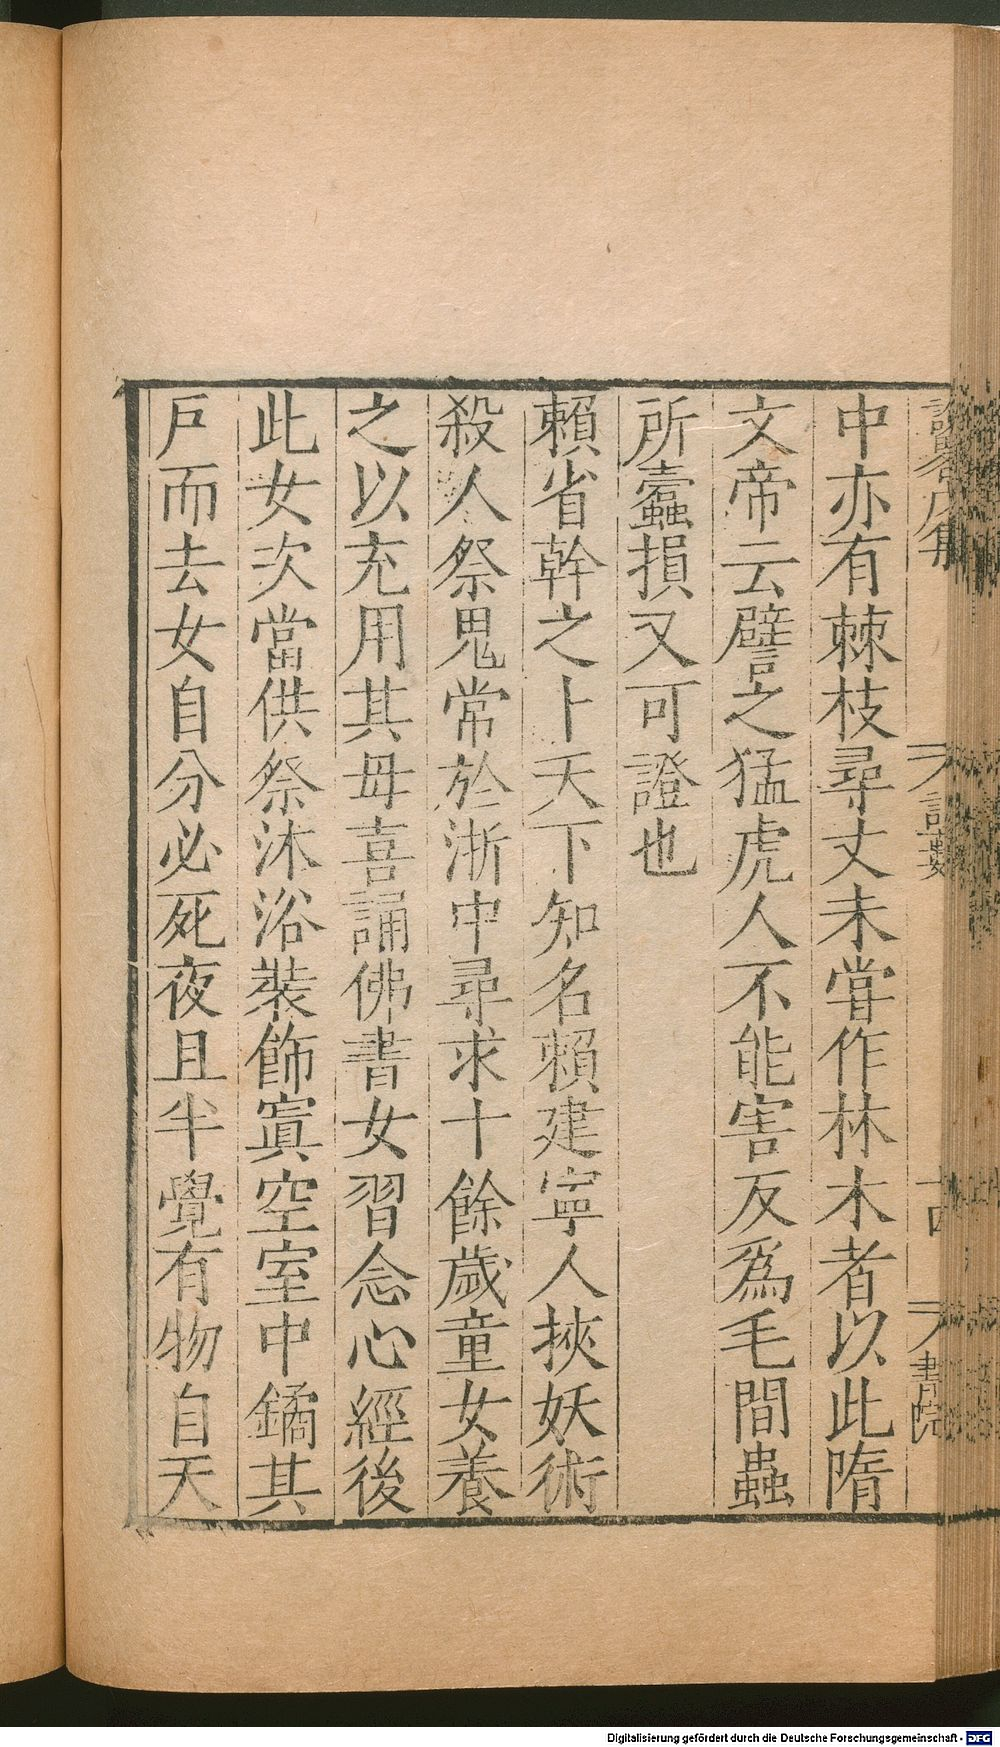 中亦有棘枝尋丈未嘗作林木者以此隋
文帝云譬之猛虎人不能害反爲毛間蟲
所蠹損又可證也
賴省幹之卜天下知名賴建寧人挾妖術
殺人祭鬼常於浙中尋求十餘歲童女養
之以充用其母喜誦佛書女習念心經後
此女次當供祭沐浴裝飾寘空室中鐍其
戶而去女自分必死夜且半覺有物自天
十四
書院
Digitalisierung gefördert durch die Deutsche Forschungsgemeinschaft - DFG